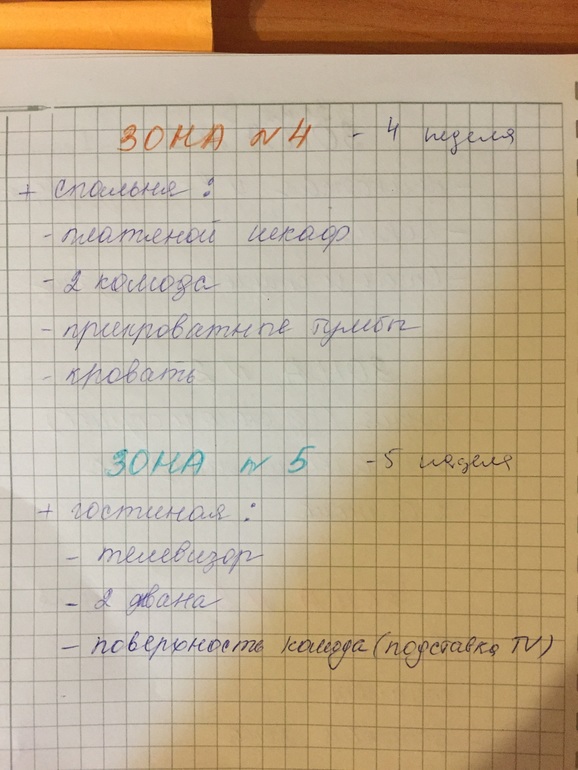 ЗОНА N4 - 4 неделя
+ спальня:
- платяной шкаф
- 2 комода
- прикроватные тумбы
- кровать
ЗОНА N 5 - 5 неделя
+ гостиная:
- телевизор
- 2 дивана
- поверхность комода (подставка TV)